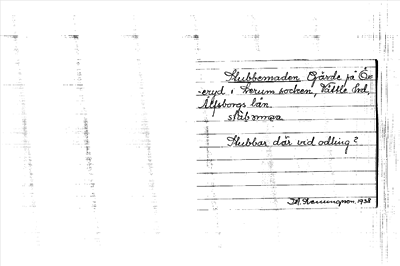 Stubbemaden Gärde på Öx-
-eryd i Lerum socken, Vättle hrd,
Älfsborgs län.
stùbəmɑa
Stubbar där vid odling?
D.A. Hemmingson. 1938